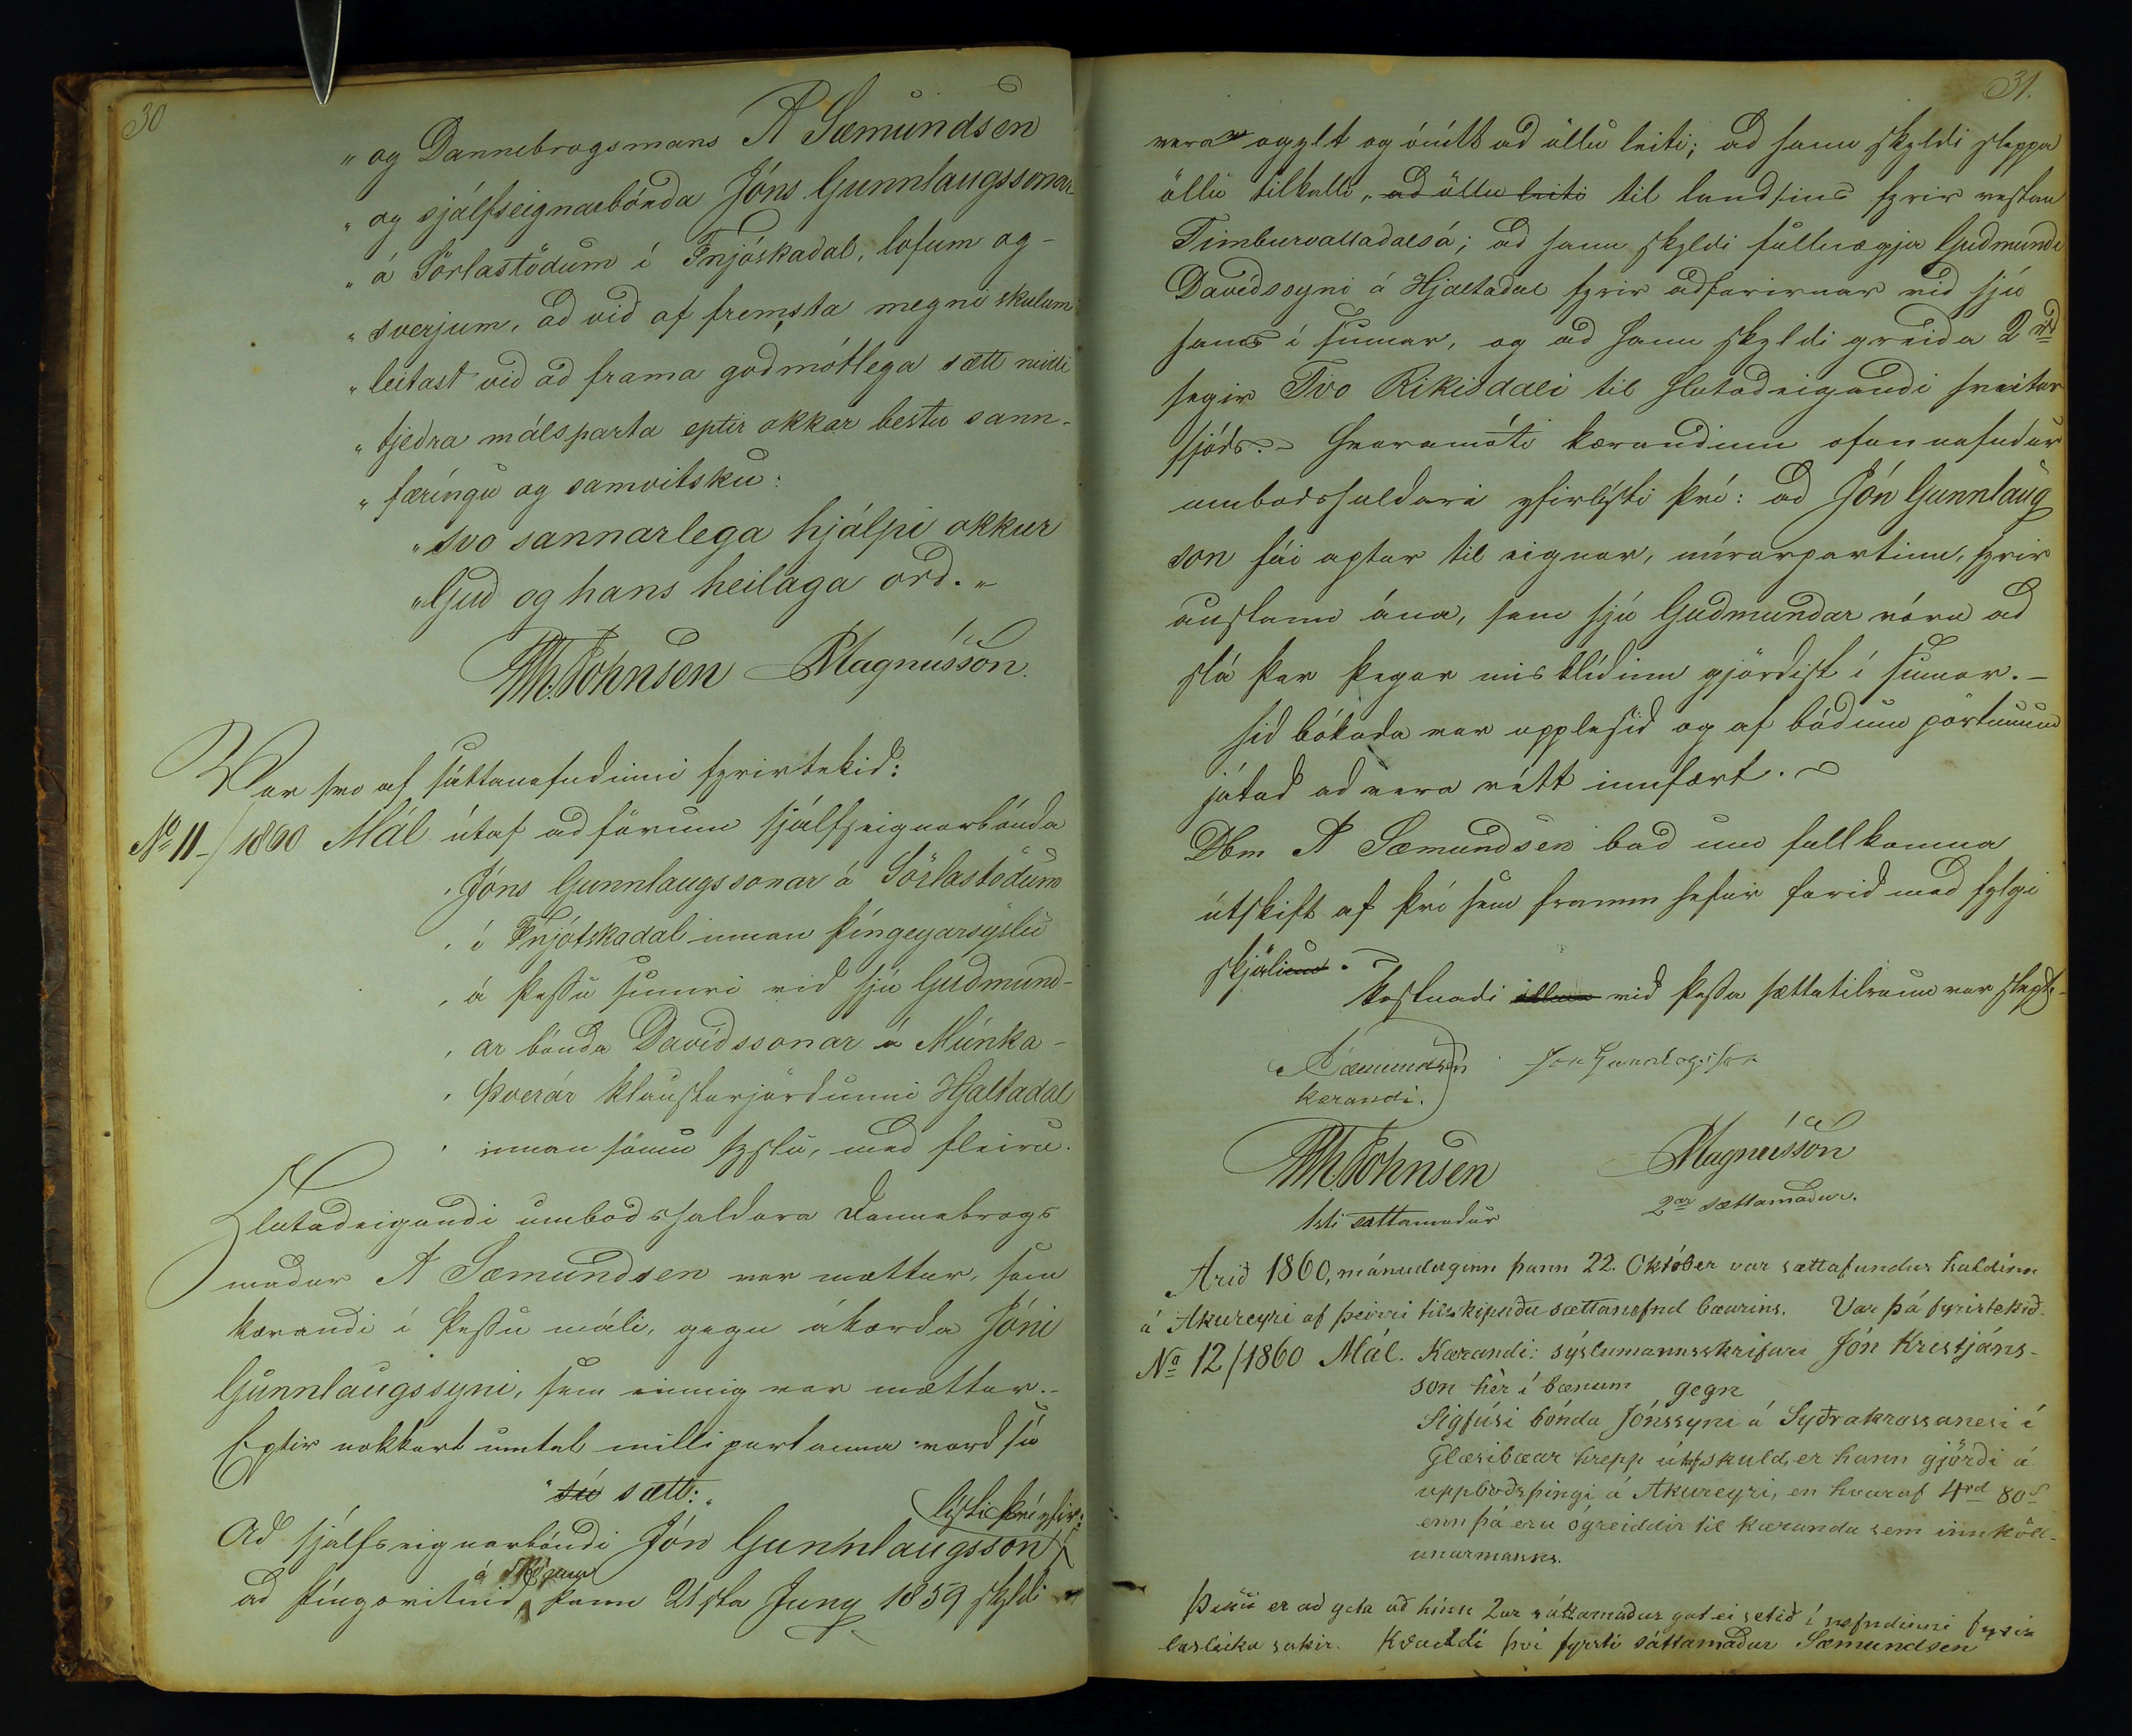 30
„ og Dannebrogsmans A Sæmundsen
„ og sjálfseignarbónda Jóns Gunnlaugssonar
„ á Sörlastödum í Fnjóskadal, lofum og-
„ sverjum, ad vid af fremsta megni skulum
„ leitast vid ad frama godmótlega sætt milli
„ tjedra málsparta eptir okkar bestu sann-
„ færíngu og samvitsku:
„ svo sannarlega hjálpi okkur
„ Gud og hans heilaga ord. „
Th. Johnsen Magnússon.
Var svo af sáttanefndinni fyrirtekid:
No 11 / 1860 Mál útaf adförum sjálfseignarbónda
Jóns Gunnlaugssonar á Sörlastödum
í Fnjóskadal innan Þíngeyarsýslu
á þessu sumri vid hjú Gudmund-
ar bónda Davídssonar á Múnka-
Þverár klausturjördunni Hjaltadal
innan sömu syslu, med fleiru.
Hlutadeigandi umbodshaldara Dannebrogs
madur A Sæmundsen var mættur, sem
kærandi í þessu máli, gegn ákærda Jóni
Gunnlaugssyni, sem einnig var mættur.-
Eptir nokkurt umtal milli partanna vard sú
„ sú sætt: „
Ad sjálfseignarbóndi Jón Gunnlaugsson lýsti því yfir:
ad þíngsvitnid á Skógum þann 21sta Juny 1859 skyldi
31.
vera ogylt og ónýtt ad öllu leiti; ad hann skyldi sleppa
öllu tilkalli, ad öllu leiti til landsins fyrir vestan
Timburvalladalsá; ad hann skyldi fullnægja Gudmundi
Davídssyni á Hjaltadal fyrir adfarirnar vid hjú
hans í sumar, og ad hann skyldi greida 2 rd
segir Tvo Rikisdali til hlutadeigandi sveitar
sjóds. - Hvaramóti kærandinn ofannefndur
umbodshaldari yfirlýsti því: ad Jón Gunnlaug
son fái aptur til eignar, mýrarpartinn, fyrir
austann ána, sem hjú Gudmundar vóru ad
slá þar þegar misklídinn gjördist í sumar. -
Hid bókada var upplesid og af bádum pörtunum
játad ad vera rétt innfært.
Dbm A Sæmundsen bad um fullkomna
útskift af því sem framm hefur farid med fylgi
skjölum.
Kostnadi vid þessa sættatilraun var slept.
A Sæmundsen Jon Gunnlogsson
kærandi.
Th. Johnsen Magnússon
1sti sættamadur 2ar sættamadur.
Arið 1860, mánudaginn þann 22. Október var sættafundur haldinn
á Akureyri af þeirri tilskipuðu sættanefnd bæarins. Var þá fyrirtekið.
No 12/1860 Mál. Kærandi: sýslumannsskrifari Jón Kristjáns-
son hèr í bænum gegn
Sigfúsi bónda Jónssyni á Syðrakrossanesi í
Glæsibæar hrepp útaf skuld, er hann gjörði á
uppboðsþingi á Akureyri, en hvaraf 4rd 80s
enn þá eru ógreiddir til kæranda sem innköll-
unarmanns.
Þess er að geta að hinn 2ar sáttamaður gat ei setið í nefndinni fyrir
lasleika sakir. Kvaddi því fyrsti sáttamaður Sæmundsen